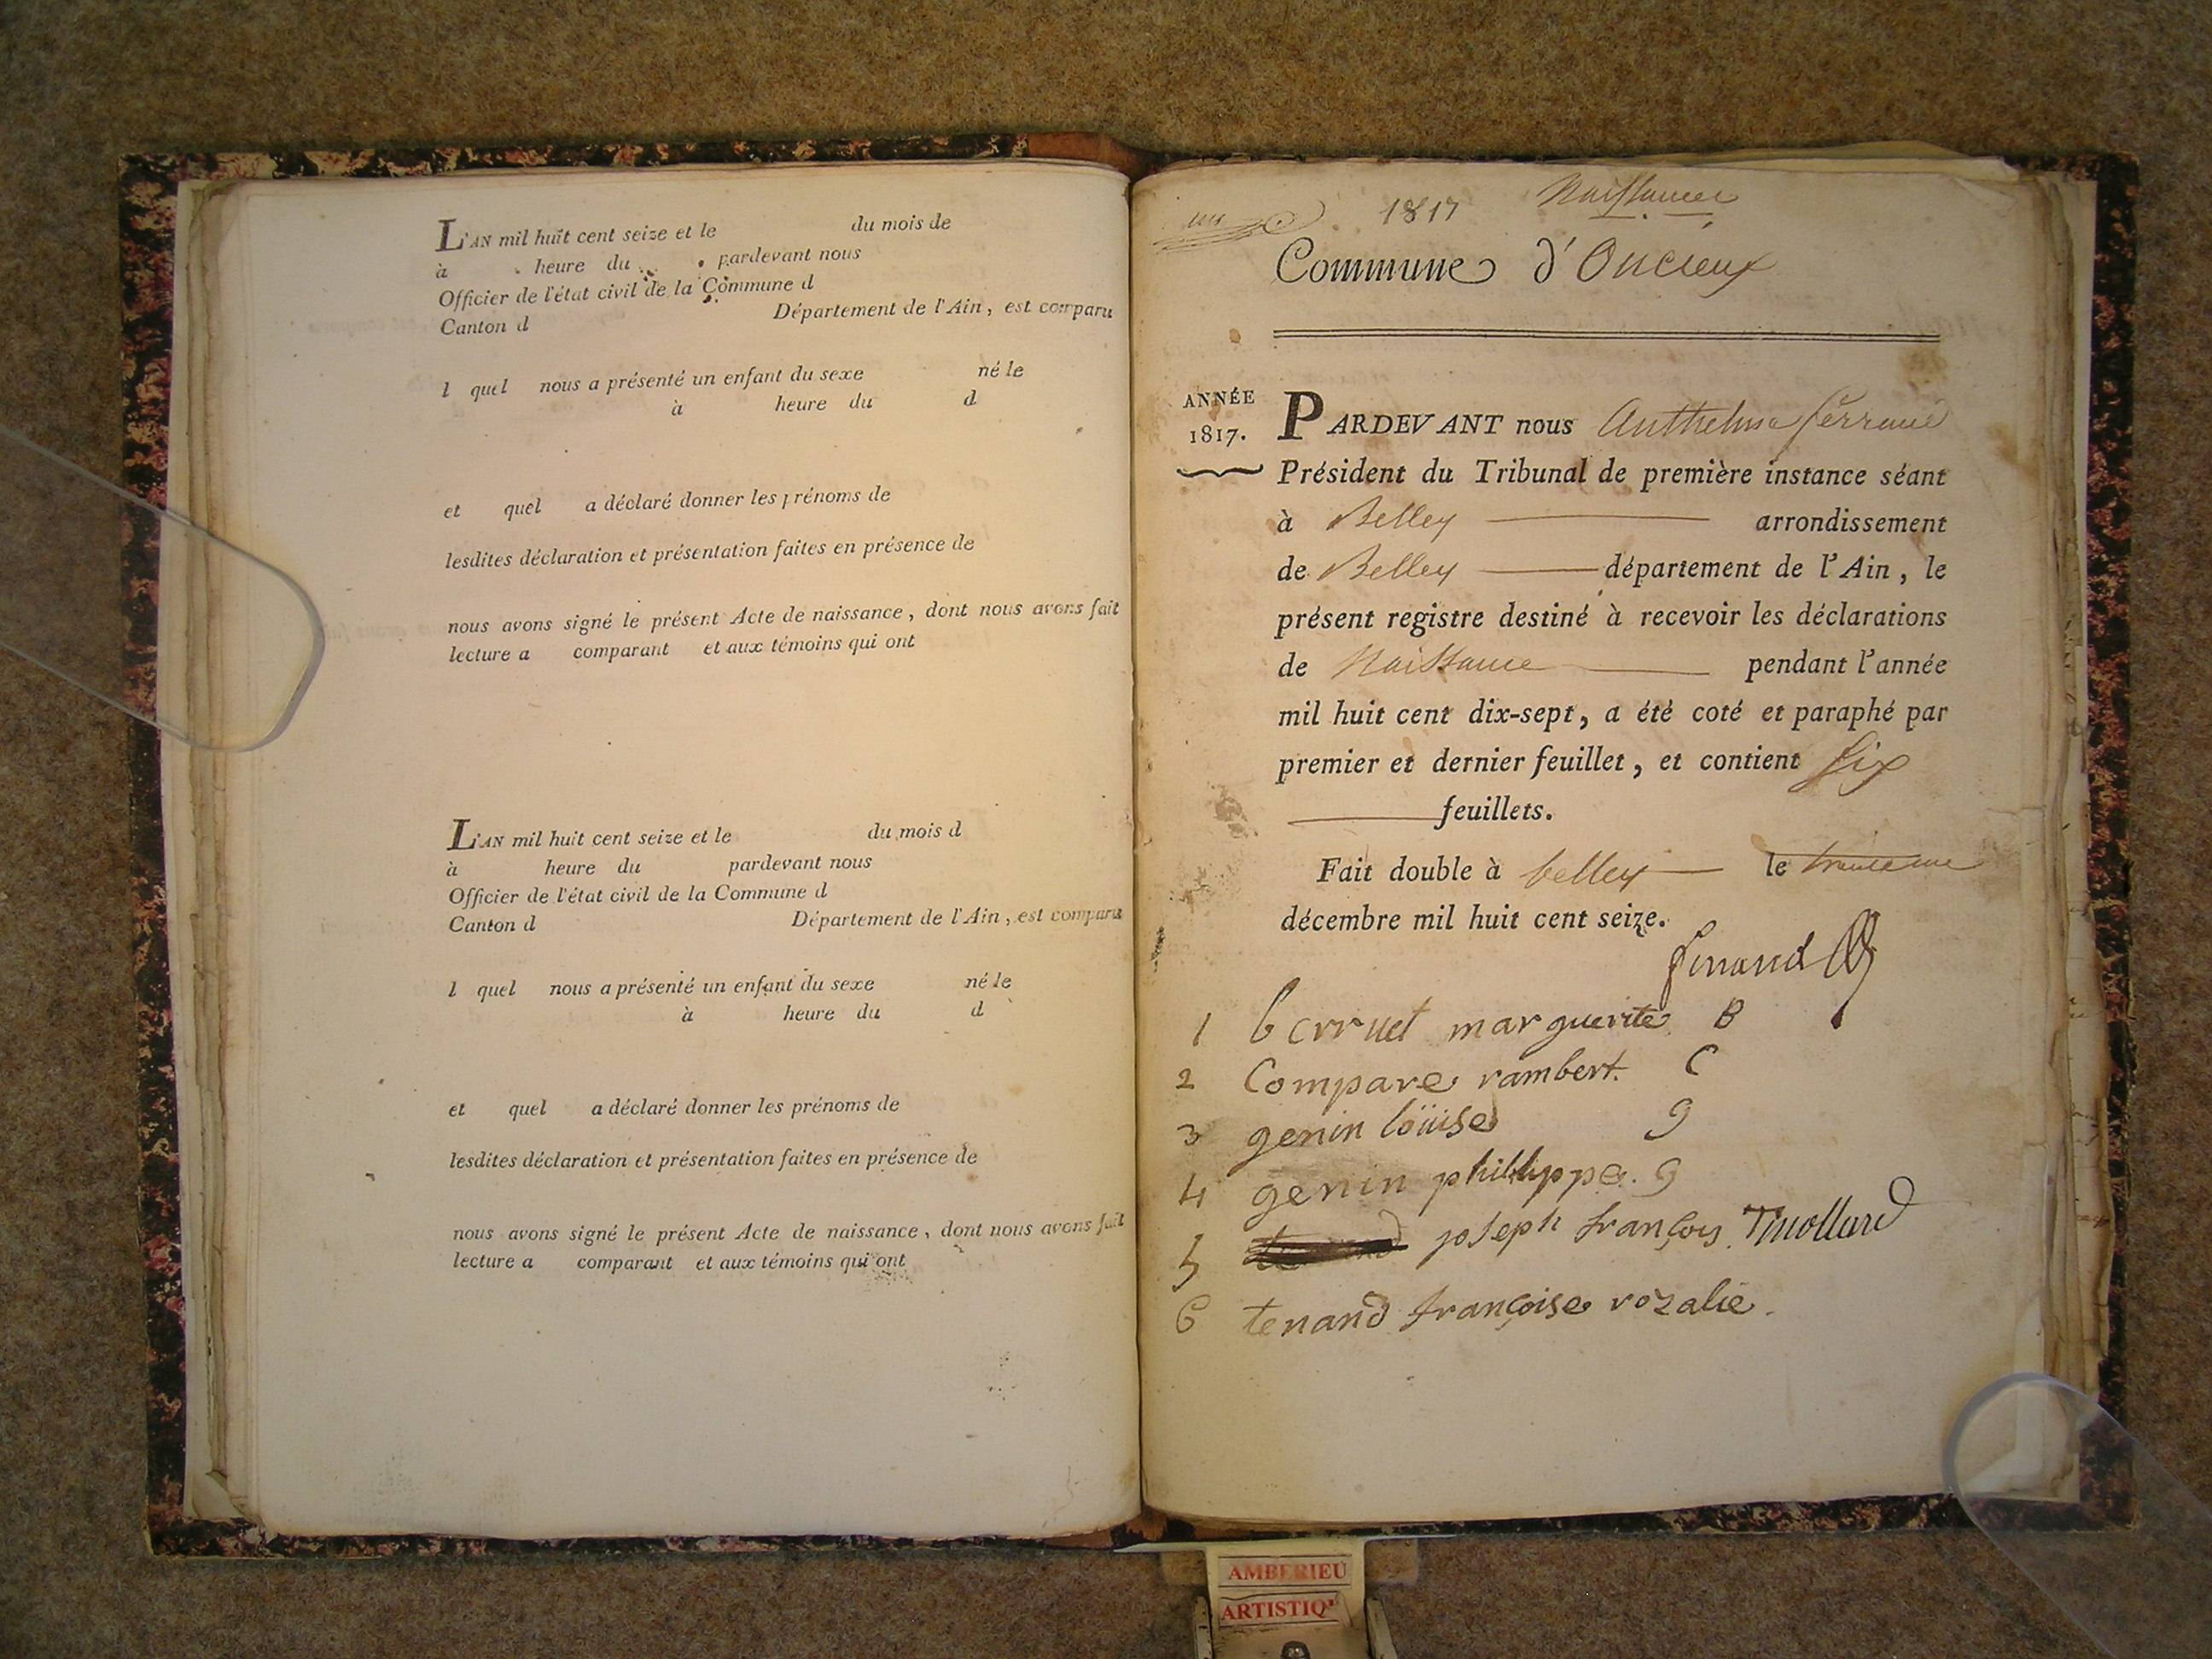 L'AN mil huit cent seize et le du mois de
à heure du pardevant nous
Officier de l'état civil de la Commune d
Canton d Département de l'Ain, est comparu
l quel nous a présenté un enfant du sexe né le
à heure du d
et quel a déclaré donner les prénoms de
lesdites déclaration et présentation faites en présence de
nous avons signé le présent Acte de naissance, dont nous avons fait
lecture a comparant et aux témoins qui ont
L'AN mil huit cent seize et le du mois d
à heure du pardevant nous
Officier de l'état civil de la Commune d
Canton d Département de l'Ain, est comparu
l quel nous a présenté un enfant du sexe né le
à heure du d
et quel a déclaré donner les prénoms de
lesdites déclaration et présentation faites en présence de
nous avons signé le présent Acte de naissance, dont nous avons fait
lecture a comparant et aux témoins qui ont
1817 Naissances
Commune d'Oncieux
ANNÉE
1817.
PARDEVANT nous Anthelme ferrand
Président du Tribunal de première instance séant
à Belley arrondissement
de Belley département de l'Ain, le
présent registre destiné à recevoir les déclarations
de Naissance pendant l'année
mil huit cent dix-sept, a été coté et paraphé par
premier et dernier feuillet, et contient six
feuillets.
Fait double à belley le
décembre mil huit cent seize.
ferrand
1 berruet marguerite B
2 Compare rambert. C
3 genin loüise g
4 genin philippe. g
5 joseph françois Tmollard
6 tenand françoise rozalie.
AMBERIEU
ARTISTIQ'